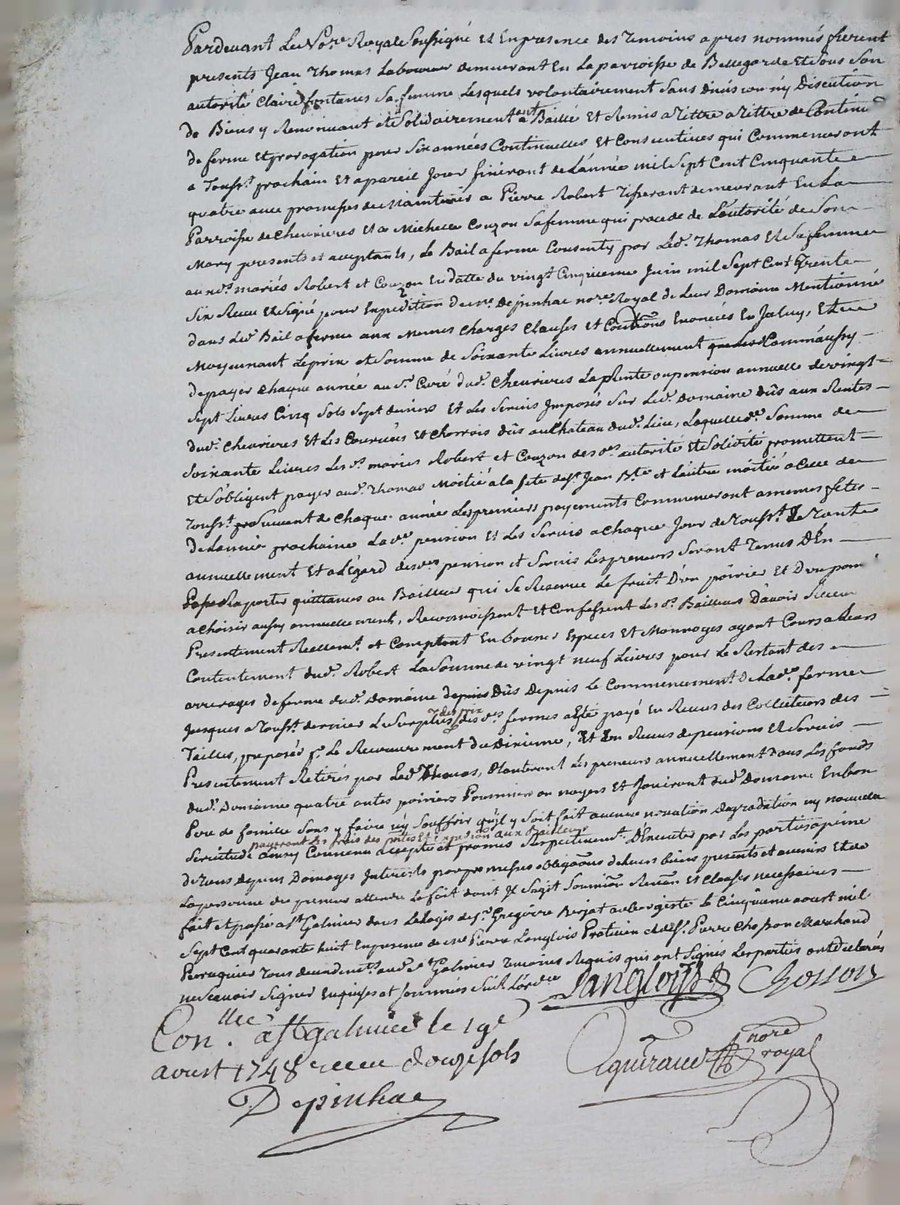 Pardevant Le No.re Royal Soussigné et En presence des Temoins apres nommés furent
presents Jean Thomas Laboureur demeurant En La parroisse de Bellegarde et sous son
autorité Claire fontanes Sa femme Lesquels volontairement Sans division ny Discution
de Biens y Renonceant et Solidairement ont Baillé et Remis a Tittre a Tittre de Continu
de ferme et prorogation pour Six années Continuelles et Consecutives qui Commenceront
a Touss.t prochain et a pareil Jour finiront de L'année mil Sept Cent Cinquante
quatre avec promesses de Maintenir a Pierre Robert Tisserant demeurant En La
Parroisse de Chevrieres et a Michelle Couzon Sa femme qui procede de L'autorité de Son
Mary presents et acceptants, Le Bail a ferme Consenty par Led. Thomas et Sa femme
aud. mariés Robert et Couzon En datte du vingt Cinquieme Juin mil Sept Cent Trente
Six Receu et Signé pour Expedition de m.e Depinhac no.re Royal de Leur Domaine Mentionné
dans Led. Bail a ferme aux Memes Charges Clauses et Conditions Enoncées En Jceluy, Et
Moyennant Le prix et Somme de Soixante Livres annuellement
de payer Chaque année au S.r Curé dud. Chevrieres La Rente ou pension annuelle de vingt
Sept Livres Cinq Sols Sept deniers et Les Servis Imposés Sur Led. domaine dûs aux Rentes
dud. Chevrieres et Les Courvées et Charrois dûs au Chateau dud. Lieu, Laquelle d. Somme de
Soixante Livres Les d. mariés Robert et Couzon des d. autorité et Solidité promettent
Et s'obligent payer aud. Thomas Moitié a la fete de S.t Jean B.te et L'autre moitié a Celle de
Touss.t de Chaque année Les premiers payements Commenceront a memes fetes
de L'année prochaine La d. pension et Les Servis a Chaque Jour de Touss.t
annuellement Et a L'égard des d. pension et Servis Les preneurs Seront Tenus D'En
Raporter quittances au Bailleur qui Se Reserve Le fruit D'un poirier et D'un pom.r
a Choisir aussy annuellement, Reconnoissent et Confessent Les d. Bailleurs D'avoir Receu
Presentement Reellem.t et Comptant En bonnes Especes et Monnoyes ayant Cours a Leurs
Contentement dud. Robert La Somme de vingt neuf Livres pour Le Restant des
arreyrages de ferme dud. Domaine Dûs Depuis Le Commencement de La d. ferme
Jusques a Touss.t dernier Le Surplus du prix des d. fermes a Eté payé En Receus des Collecteurs des
Tailles, preposés p.r Le Recouvrement du Dixieme, Et En Receus de pensions et Servis
Presentement Retirés par Led. Thomas, Planteront Les preneurs annuellement Dans Les fonds
dud. Domaine quatre antes poiriers Pommier ou noyers et Jouiront dud. Domaine En bon
Pere de famille Sans y faire ny Souffrir qu'il y Soit fait aucune novation Degradation ny nouvelle
payeront les frais des présentes et Expedition aux Bailleurs
Servitude ainsy Convenu accepté et promis Respectivement D'Executer par Les parties a peine
de Tous depens Domages Interests par promesses obligations de Leurs biens presents et avenirs et de
La personne des preneurs attendu Le fait dont Jl Sagit Soumission Renon et Clauses necessaires
fait et passé a S.t Galmier dans Le Logis de S.r Gregoire aubergiste Le Cinquieme aoust mil
Sept Cent quarante huit En presence de m.e Pierre Langlois Praticien et de S.r Pierre Chosson Marchand
Perruquier Tous deux de S.t Galmier Temoins Requis qui ont Signés Les parties ont declarés
ne Scavoir Signer Enquises et Sommées
Langlois Chosson
Con.llé a St galmier le 19e
aoust 1748 receu douze sols
Depinhac
Aguiraud no.re royal